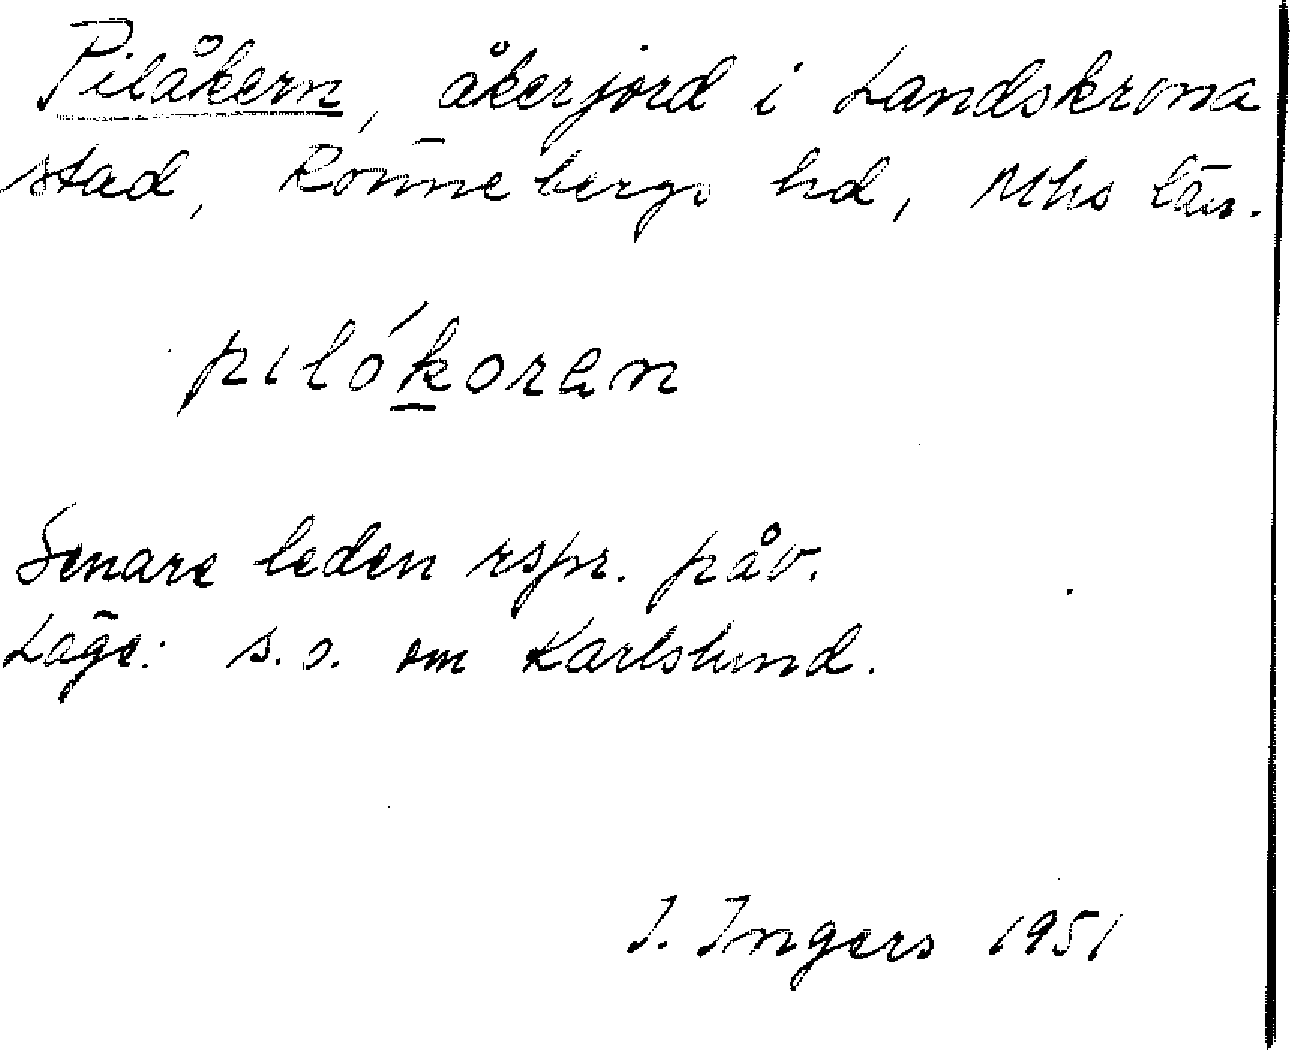 Pilåkern, åkerjord i Landskrona
stad, Rönnebergs hd, Mhs län.
pilókoran
Senare leden rspr. påv.
Läge: s.o. om Karlslund.
I. Ingers 1951